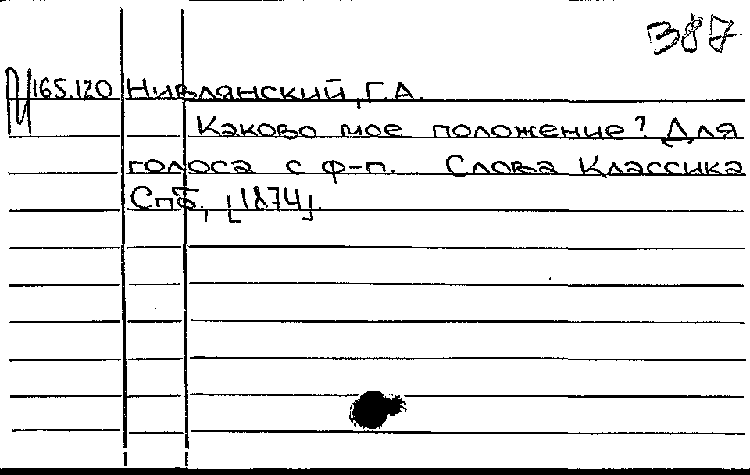 387
165.120 Нивлянский, Г.А.
Каково мое положение? Для
голоса с ф-п. Слова Классика
Спб, [1874].